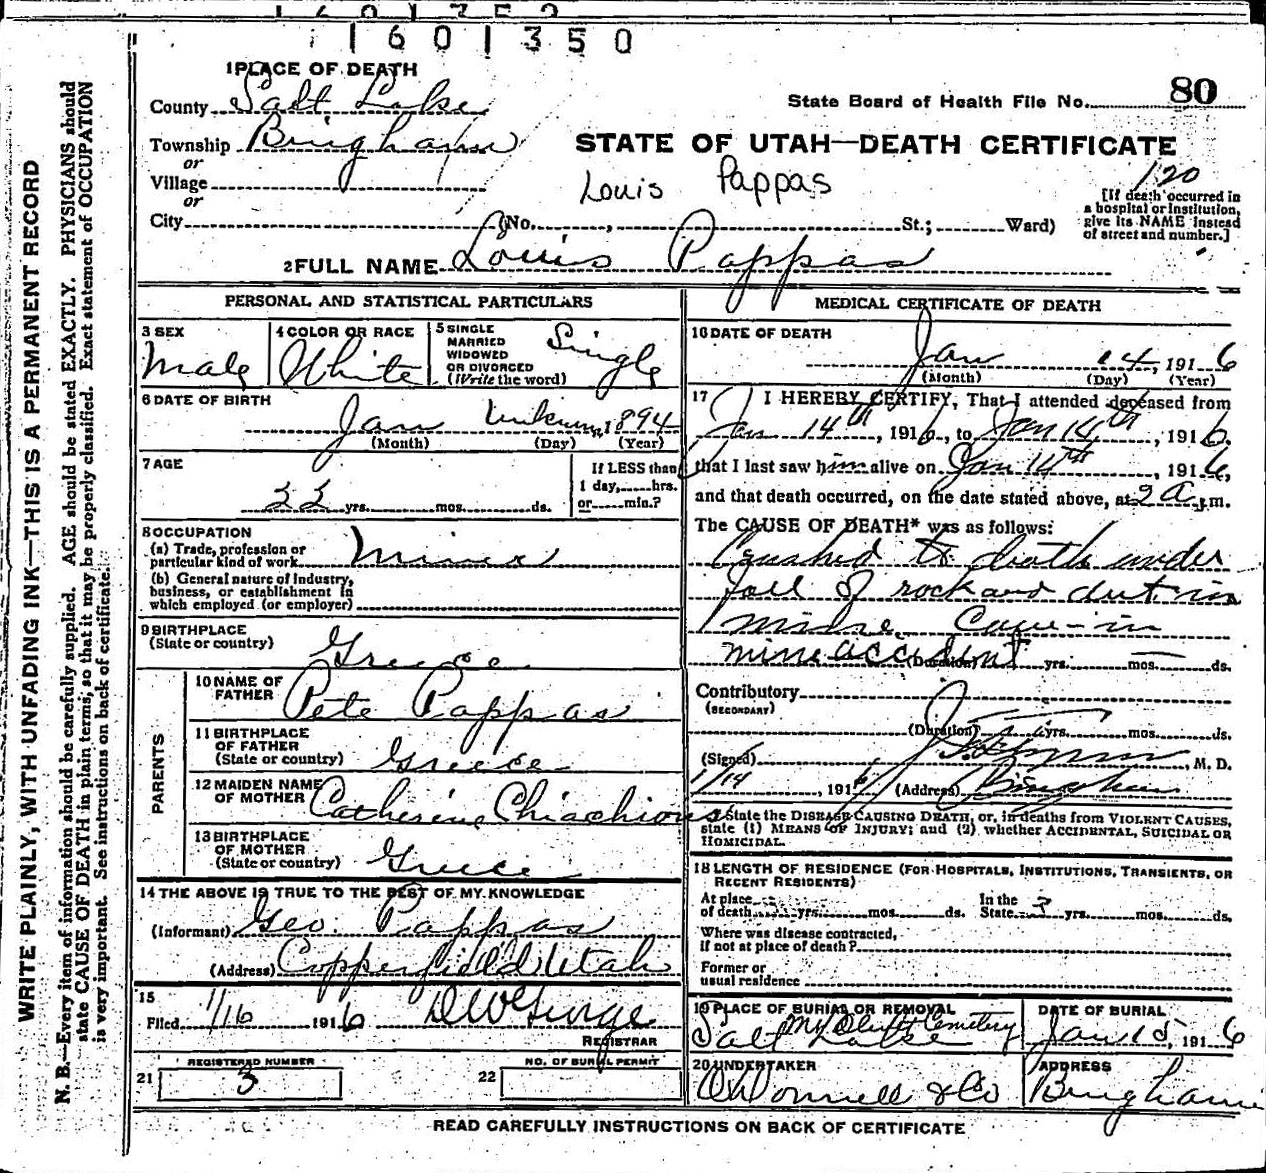 1601350
1 PLACE OF DEATH
County Salt Lake
State Board of Health File No. 80
Township Bingham
STATE OF UTAH—DEATH CERTIFICATE
or
Village
Louis Pappas
120
or
[If death occurred in
a hospital or institution,
give its NAME instead
of street and number.]
City (No. , St.; Ward)
2 FULL NAME Louis Pappas
PERSONAL AND STATISTICAL PARTICULARS
3 SEX
Male
4 COLOR OR RACE
White
5 SINGLE
MARRIED
WIDOWED
OR DIVORCED
(Write the word)
Single
6 DATE OF BIRTH
Jan 1894
(Month) (Day) (Year)
7 AGE
22 yrs. mos. ds.
If LESS than
1 day, hrs.
or min.?
8 OCCUPATION
(a) Trade, profession or
particular kind of work Miner
(b) General nature of industry,
business, or establishment in
which employed (or employer)
9 BIRTHPLACE
(State or country)
Greece
PARENTS
10 NAME OF
FATHER Pete Pappas
11 BIRTHPLACE
OF FATHER
(State or country) Greece
12 MAIDEN NAME
OF MOTHER Catherine Chiachious
13 BIRTHPLACE
OF MOTHER
(State or country) Greece
14 THE ABOVE IS TRUE TO THE BEST OF MY KNOWLEDGE
(Informant) Geo. Pappas
(Address) Copperfield Utah
15
Filed 1/16 1916 D W George
REGISTRAR
REGISTERED NUMBER
21 3
NO. OF BURIAL PERMIT
22
MEDICAL CERTIFICATE OF DEATH
16 DATE OF DEATH
Jan 14, 1916
(Month) (Day) (Year)
17 I HEREBY CERTIFY, That I attended deceased from
Jan 14th, 1916, to Jan 14th, 1916.
that I last saw him alive on Jan 14th, 1916,
and that death occurred, on the date stated above, at 2 a. m.
The CAUSE OF DEATH* was as follows:
Crushed to death under
fall of rock and dirt in
mine. Cave-in
mine accident (Duration) yrs. mos. ds.
Contributory
(SECONDARY)
(Duration) yrs. mos. ds.
(Signed) , M. D.
1/14, 1916 (Address) Bingham
* State the DISEASE CAUSING DEATH, or, in deaths from VIOLENT CAUSES,
state (1) MEANS OF INJURY; and (2) whether ACCIDENTAL, SUICIDAL OR
HOMICIDAL.
18 LENGTH OF RESIDENCE (FOR HOSPITALS, INSTITUTIONS, TRANSIENTS, OR
RECENT RESIDENTS)
At place In the
of death yrs. mos. ds. State 3 yrs. mos. ds.
Where was disease contracted,
if not at place of death?
Former or
usual residence
19 PLACE OF BURIAL OR REMOVAL
Mt Olivet Cemetery
Salt Lake
DATE OF BURIAL
Jan 15, 1916
20 UNDERTAKER
O'Donnell & Co
ADDRESS
Bingham
READ CAREFULLY INSTRUCTIONS ON BACK OF CERTIFICATE
WRITE PLAINLY, WITH UNFADING INK—THIS IS A PERMANENT RECORD
N. B.—Every item of information should be carefully supplied. AGE should be stated EXACTLY. PHYSICIANS should
state CAUSE OF DEATH in plain terms, so that it may be properly classified. Exact statement of OCCUPATION
is very important. See instructions on back of certificate.